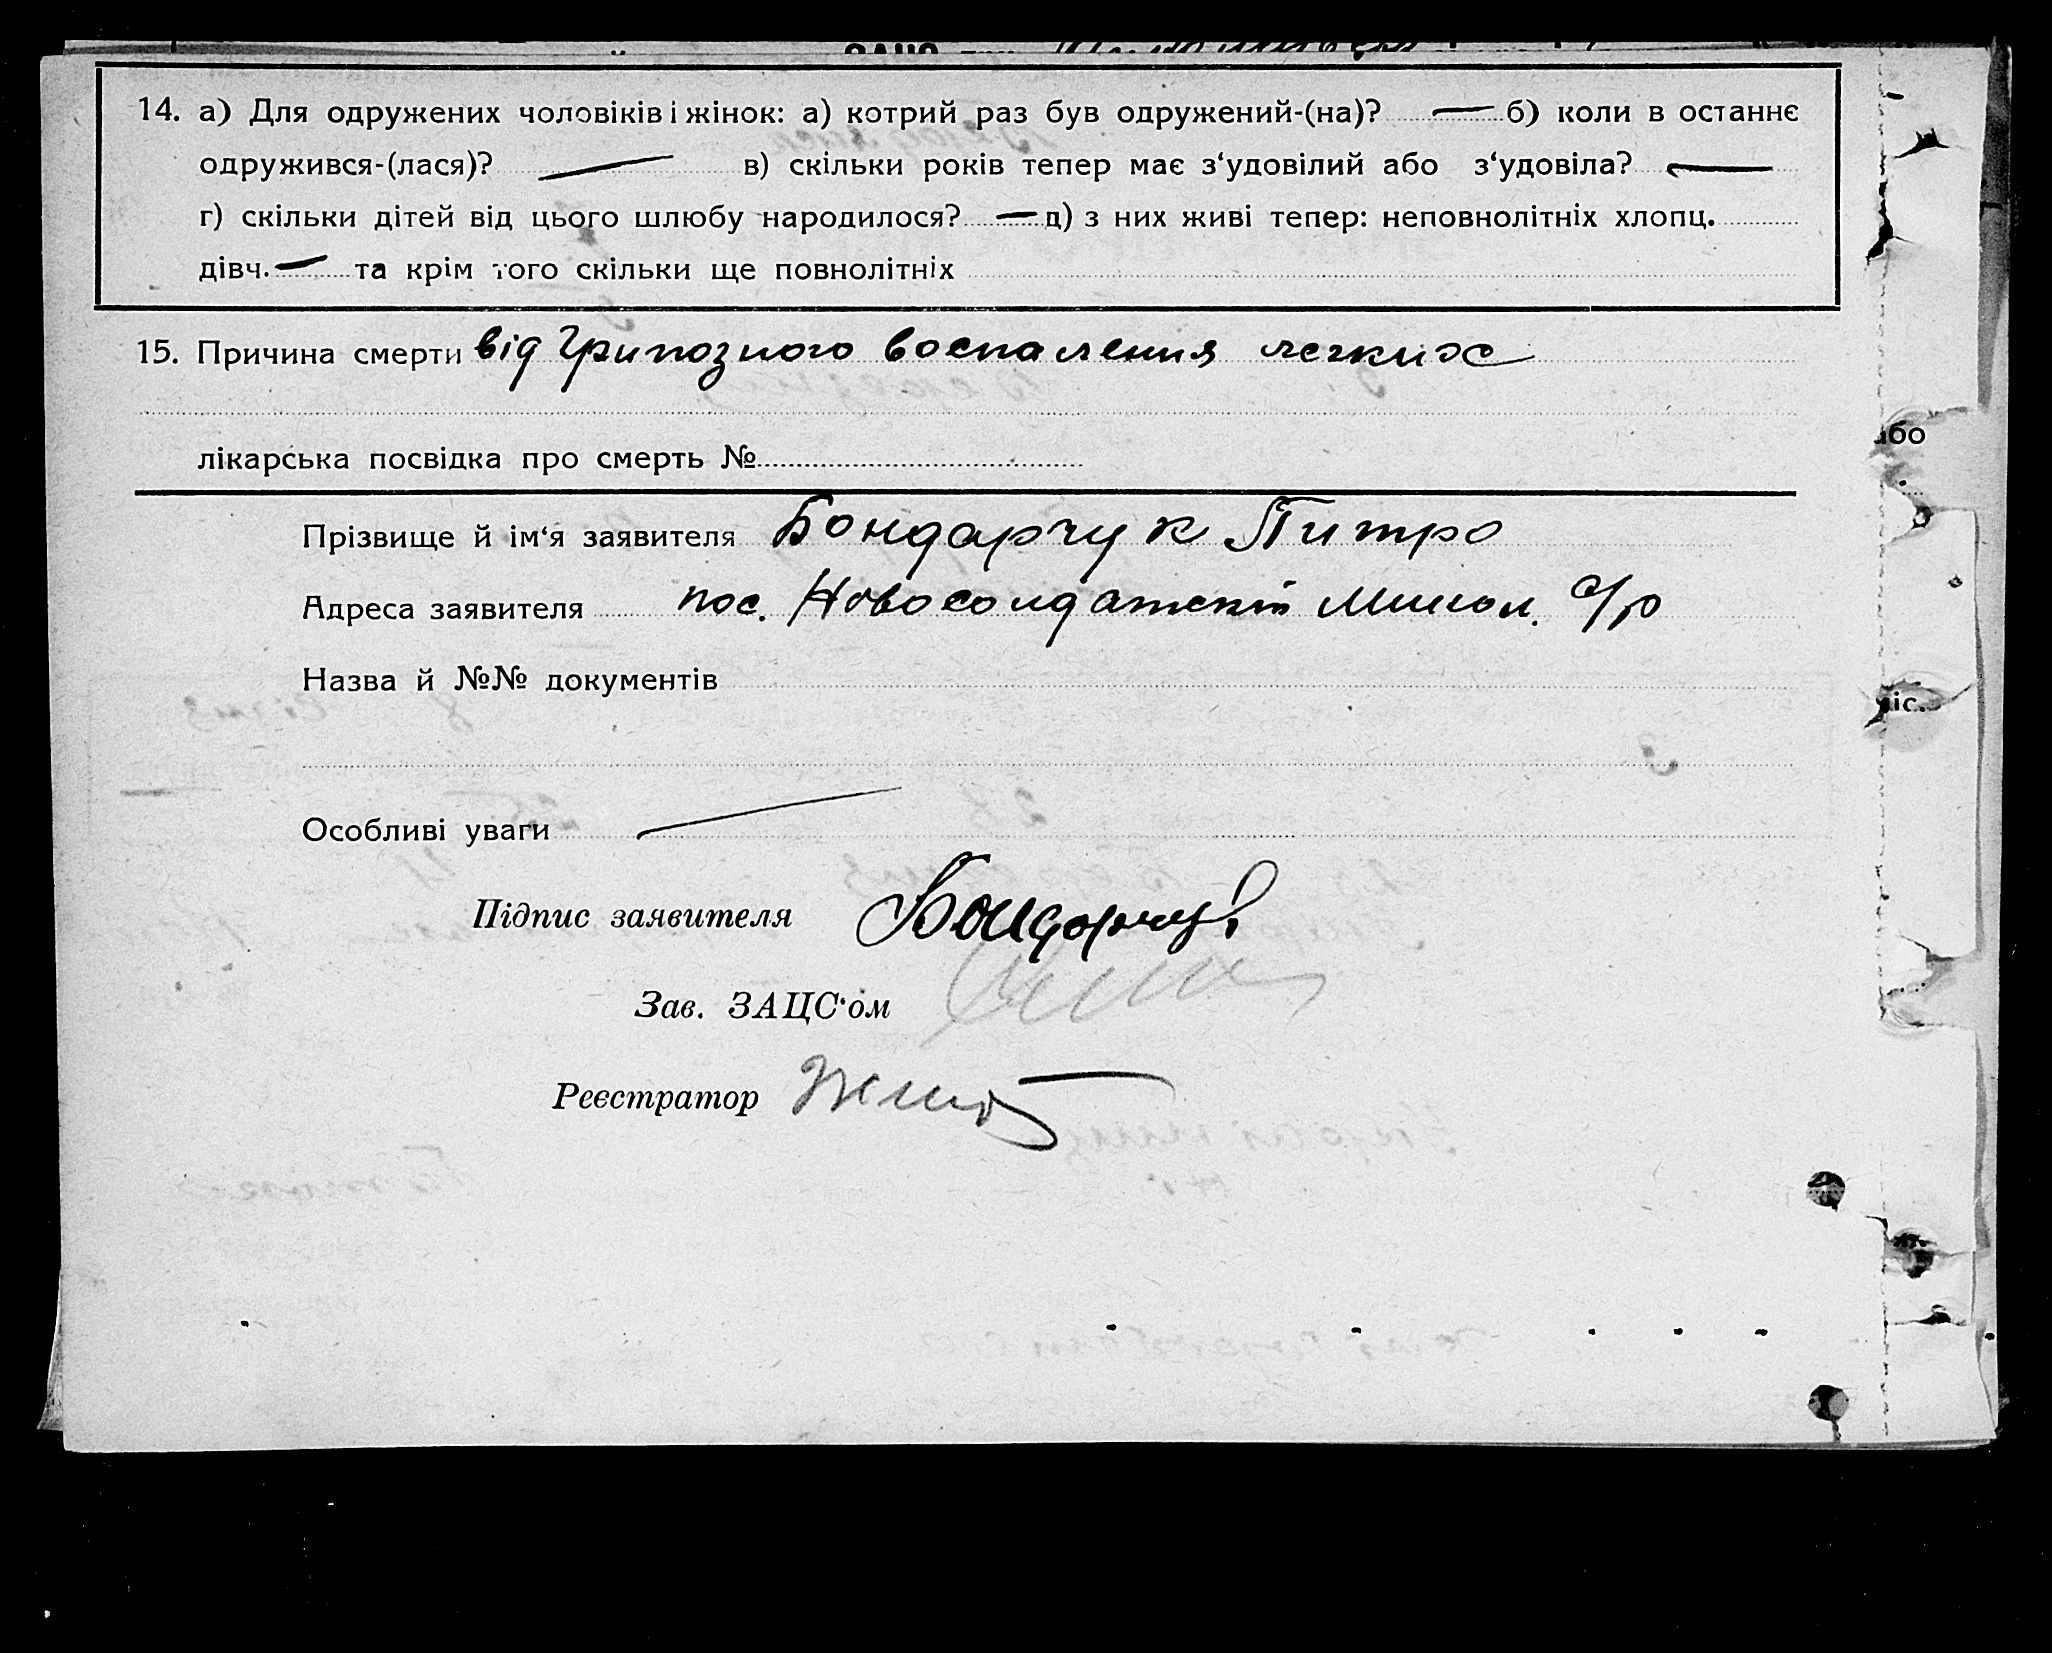 14. а) Для одружених чоловіків і жінок: а) котрий раз був одружений-(на)? — б) коли в останнє
одружився-(лася)? — в) скільки років тепер має з‘удовілий або з‘удовіла? —
г) скільки дітей від цього шлюбу народилося? — д) з них живі тепер: неповнолітніх хлопц.
дівч. — та крім того скільки ще повнолітніх
15. Причина смерти від Грипозного воспаления легких
лікарська посвідка про смерть №
Прізвище й ім‘я заявителя Бондарчук Питро
Адреса заявителя пос. Новосолдатский с/р
Назва й №№ документів
Особливі уваги —
Підпис заявителя Бондарчук
Зав. ЗАЦС‘ом
Реєстратор
або
міс.